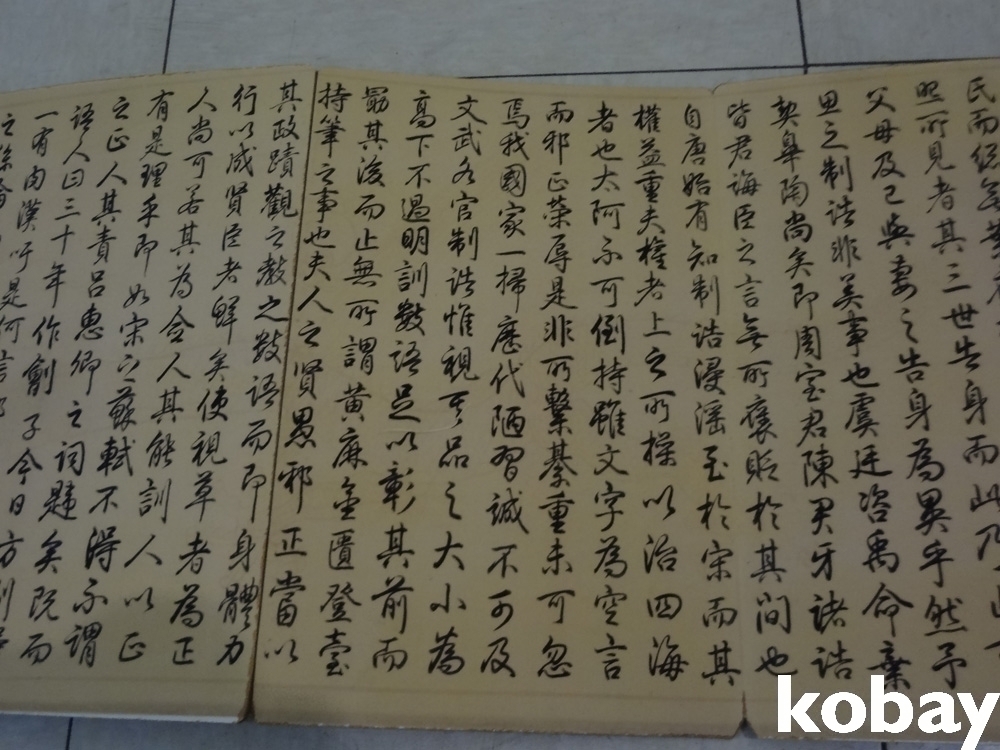 民而
照所見者其三世告身而此乃
父母及己與妻之告身為異乎然予
思之制誥非美事也虞廷咨禹命棄
契皋陶尚矣即周室君陳君牙諸誥
皆君誨臣之言無所褒貶於其間也
自唐始有知制誥浸淫至於宋而其
權益重夫權者上之所操以治四海
者也太阿不可倒持雖文字為空言
而邪正榮辱是非所繫綦重未可忽
焉我國家一掃歷代陋習誠不可及
文武各官制誥惟視其品之大小為
高下不過明訓數語足以彰其前而
勗其後而止無所謂黃麻金匱登臺
持筆之事也夫人之賢愚邪正當以
其政蹟觀之敎之數語而即身體力
行以成賢臣者鮮矣使視草者為正
人尚可若其為僉人其能訓人以正
有是理乎即如宋之蘇軾不得不謂
之正人其責呂惠卿之詞韙矣既而
語人曰三十年作劊子今日方剮得
一有肉漢吁是何言
之孫
kobay